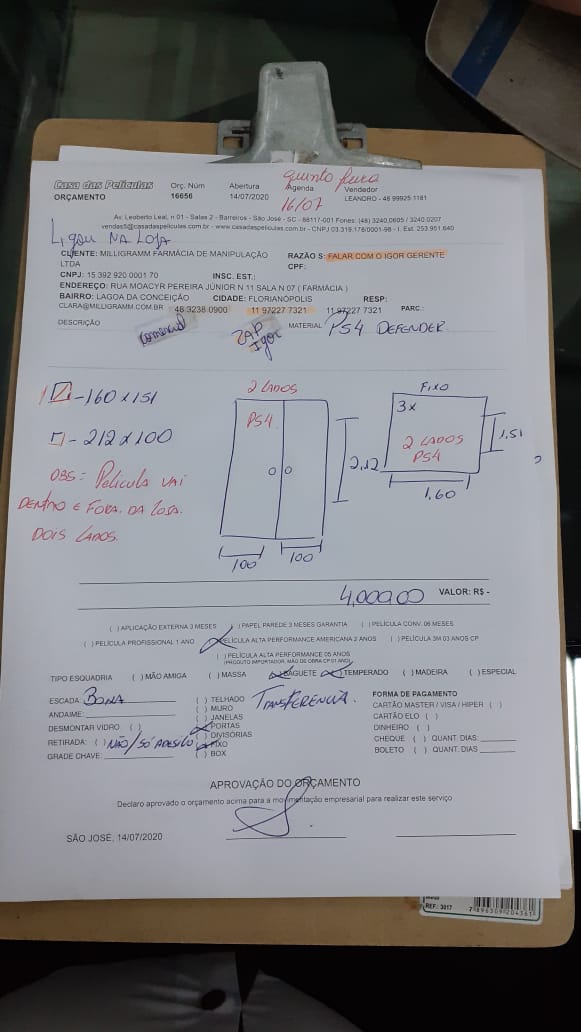 Casa das Películas
Orç. Núm
Abertura
quinta feira
Agenda
Vendedor
ORÇAMENTO
16656
14/07/2020
16/07
LEANDRO - 48 99925 1181
Av. Leoberto Leal, n 01 - Salas 2 - Barreiros - São José - SC - 88117-001 Fones: (48) 3240.0605 / 3240.0207
vendas5@casadaspeliculas.com.br - www.casadaspeliculas.com.br - CNPJ 03.319.178/0001-98 - I. Est. 253.951.640
Ligou NA LOJA
CLIENTE: MILLIGRAMM FARMÁCIA DE MANIPULAÇÃO LTDA
RAZÃO S: FALAR COM O IGOR GERENTE
CPF:
CNPJ: 15 392 920 0001 70
INSC. EST.:
ENDEREÇO: RUA MOACYR PEREIRA JÚNIOR N 11 SALA N 07 ( FARMÁCIA )
BAIRRO: LAGOA DA CONCEIÇÃO
CIDADE: FLORIANÓPOLIS
RESP:
CLARA@MILLIGRAMM.COM.BR
48 3238 0900
11 97227 7321
11 97227 7321
PARC.:
DESCRIÇÃO
comercial
ZAP Igor
MATERIAL
PS4 DEFENDER.
1 - 160 x 151
- 212 x 100
OBS: Película VAI
DENTRO E FORA DA LOJA.
DOIS LADOS.
2 LADOS
PS4
2,12
100
100
FIXO
3x
2 LADOS
PS4
1,51
1,60
4,000,00
VALOR: R$ -
( ) APLICAÇÃO EXTERNA 3 MESES
( ) PAPEL PAREDE 3 MESES GARANTIA
( ) PELÍCULA CONV. 06 MESES
( ) PELÍCULA PROFISSIONAL 1 ANO
(X) PELÍCULA ALTA PERFORMANCE AMERICANA 2 ANOS
( ) PELÍCULA 3M 03 ANOS CP
( ) PELÍCULA ALTA PERFORMANCE 05 ANOS
(PRODUTO IMPORTADOR, MÃO DE OBRA CP 01 ANO)
TIPO ESQUADRIA
( ) MÃO AMIGA
( ) MASSA
(X) BAGUETE
(X) TEMPERADO
( ) MADEIRA
( ) ESPECIAL
ESCADA: BONA
ANDAIME:
DESMONTAR VIDRO ( )
RETIRADA: ( ) NÃO/SÓ ADESIVO
GRADE CHAVE:
( ) TELHADO
( ) MURO
( ) JANELAS
(X) PORTAS
( ) DIVISÓRIAS
(X) FIXO
( ) BOX
TRANSFERENCIA.
FORMA DE PAGAMENTO
CARTÃO MASTER / VISA / HIPER ( )
CARTÃO ELO ( )
DINHEIRO ( )
CHEQUE ( ) QUANT. DIAS:
BOLETO ( ) QUANT. DIAS
APROVAÇÃO DO ORÇAMENTO
Declaro aprovado o orçamento acima para a movimentação empresarial para realizar este serviço
SÃO JOSÉ, 14/07/2020
REF.: 3017
7 896309 204361